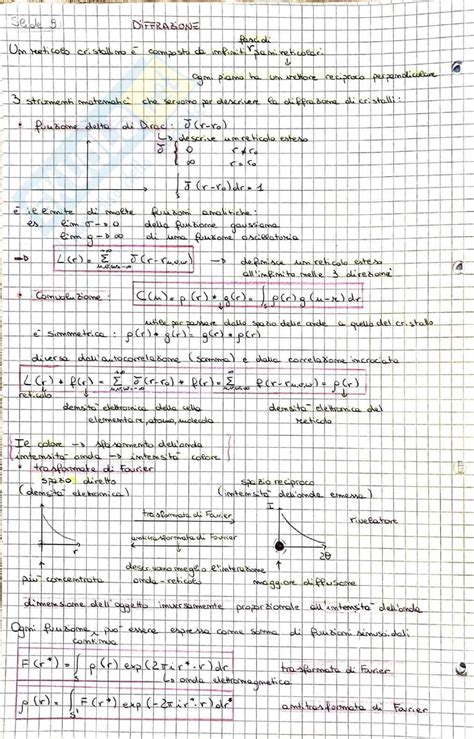 Slide 9:
DIFFRAZIONE
fasci di
Un reticolo cristallino è composto da infiniti piani reticolari
ogni piano ha un vettore reciproco perpendicolare
3 strumenti matematici che servono per descrivere la diffrazione di cristalli:
• funzione delta di Dirac: δ(r-r₀)
↳ descrive un reticolo esteso
δ { 0 r≠r₀
∞ r=r₀
∫ δ(r-r₀)dr = 1
è il limite di molte funzioni analitiche:
es. lim σ→0 della funzione gaussiana
lim g→∞ di una funzione oscillatoria
→ L(r) = Σ δ(r-r uvw) → definisce un reticolo esteso
all'infinito nelle 3 direzioni
• Convoluzione: C(u) = ρ(r) * g(r) = ∫ ρ(r) g(u-r) dr
utile per passare dallo spazio delle onde a quello del cristallo
è simmetrica: ρ(r) * g(r) = g(r) * ρ(r)
diversa dall'autocorrelazione (somma) e dalla correlazione incrociata
L(r) * f(r) = Σ δ(r-r₀) * f(r) = Σ f(r-r uvw) = ρ(r)
reticolo
densità elettronica della cella densità elettronica del
elementare, atomo, molecola reticolo
Il colore → sfasamento dell'onda
intensità onda → intensità colore
• trasformate di Fourier
spazio diretto spazio reciproco
(densità elettronica) (intensità dell'onda emessa)
I
trasformata di Fourier rivelatore
antitrasformata di Fourier
r 2θ
descrivono meglio l'interazione
più concentrata onda-reticolo maggiore diffusione
dimensione dell'oggetto inversamente proporzionale all'intensità dell'onda
Ogni funzione può essere espressa come somma di funzioni sinusoidali
continua
F(r*) = ∫ ρ(r) exp(2πi r*·r) dr trasformata di Fourier
↳ onda elettromagnetica
ρ(r) = ∫ F(r*) exp(-2πi r*·r) dr* antitrasformata di Fourier